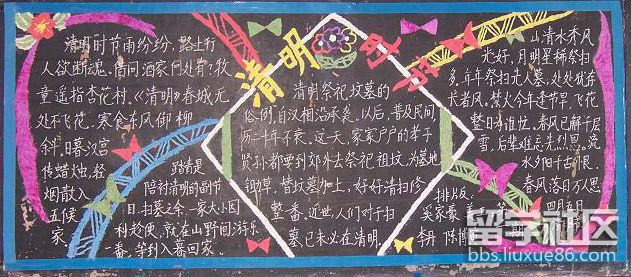 清明时节
清明时节雨纷纷，路上行
人欲断魂。借问酒家何处有？牧
童遥指杏花村。《清明》春城无
处不飞花，寒食东风御柳
斜。日暮汉宫
传蜡烛，轻
烟散入
五侯
家。
踏青是
陪衬清明的副节
目，扫墓之余，一家大小因
利趁便，就在山野间游乐
一番，等到入暮回家。
清明祭祀坟墓的
俗例，自汉相沿承袭，以后，普及民间
历二千年不衰，这一天，家家户户的孝子
贤孙都要到郊外去祭祀祖坟，为墓地
锄草，替坟墓加土，好好清扫修
整一番。近世，人们对于扫
墓，已未必在清明。
山清水秀风
光好，月明星稀祭扫
多，年年祭扫先人墓，处处犹存
长者风。禁火今年逢节早，飞花
整日
春风已解千层
雪，后辈难忘先烈恩。
水夕阳千古
春风落日万人
思
排版
留学社区
bbs.liuxue86.com